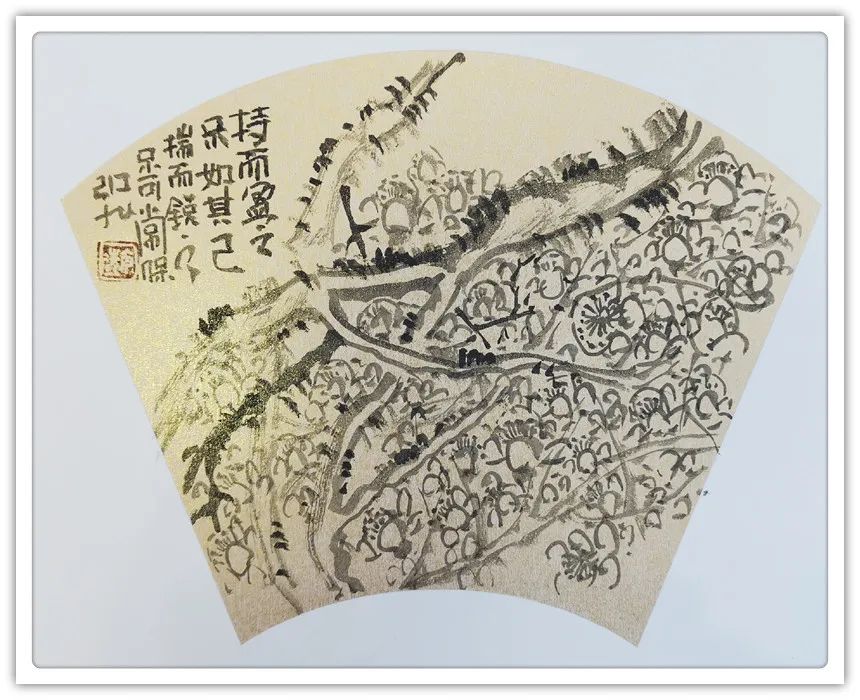 持而盈之
不如其已
揣而锐之
不可常保